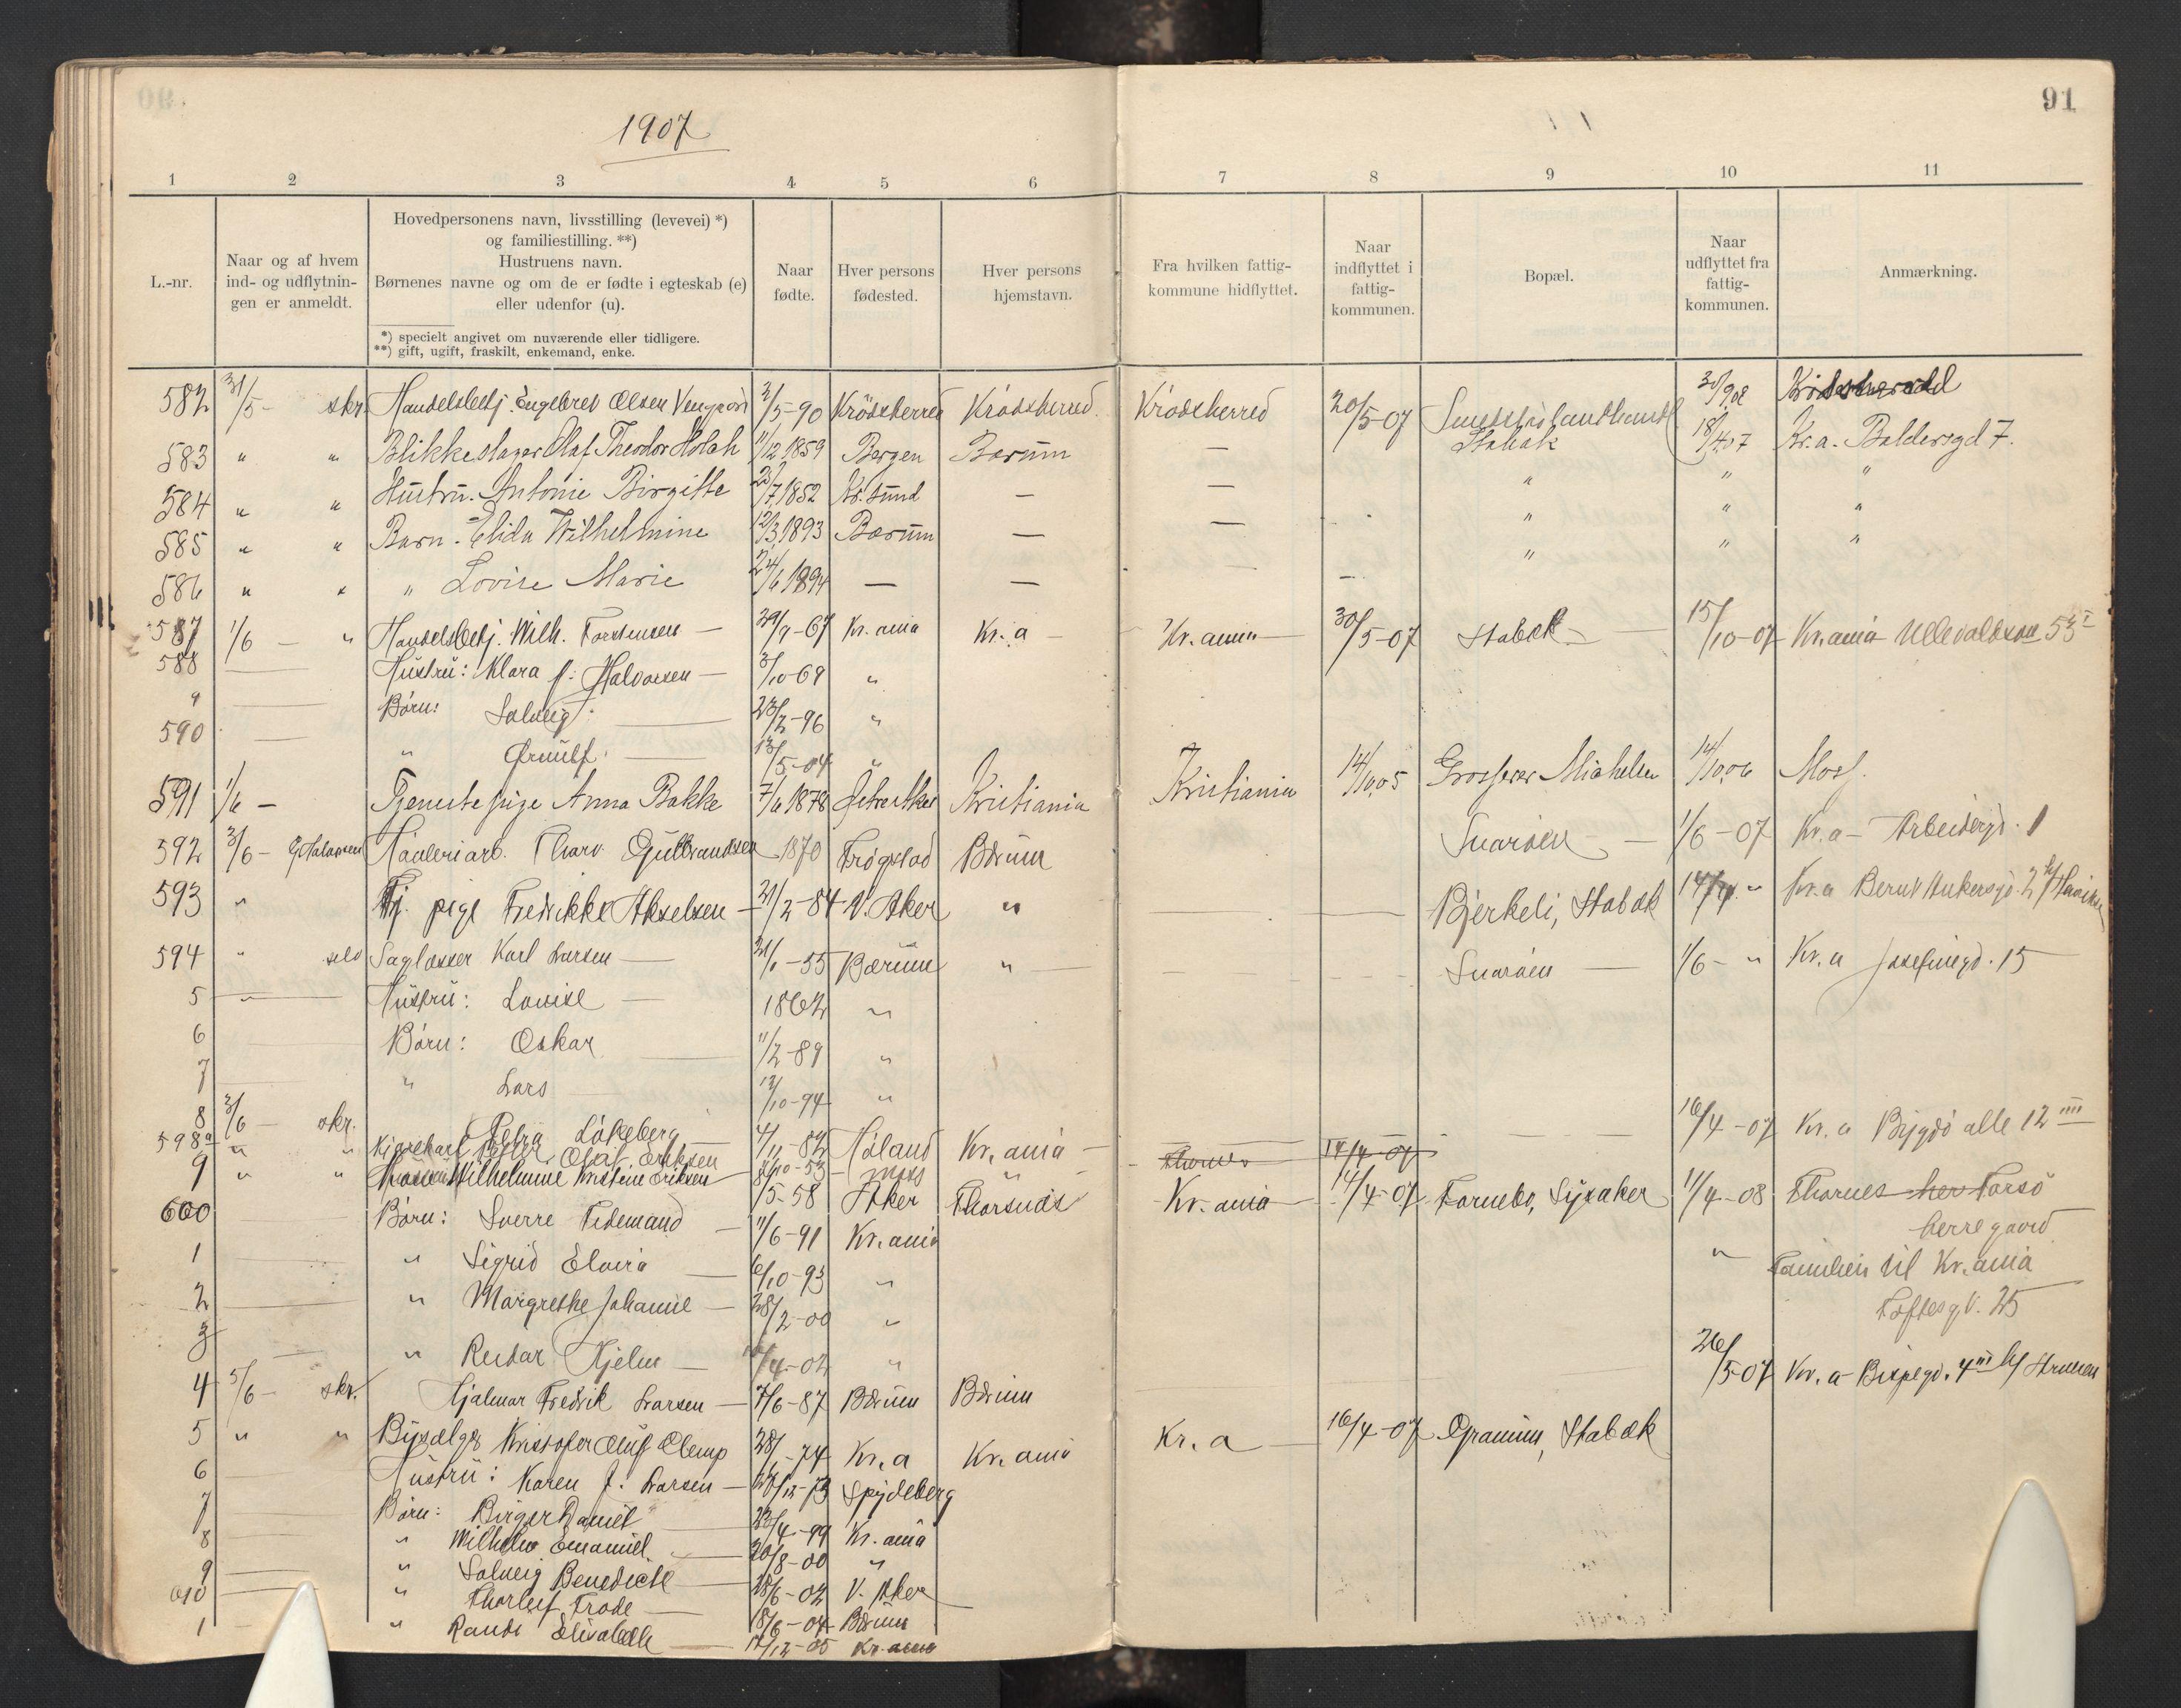 91
1907
1 2 3 4 5 6 7 8 9 10 11
L.-nr.
Naar og af hvem ind- og udflytnin-gen er anmeldt.
Hovedpersonens navn, livsstilling (levevei) *)
og familiestilling. **)
Hustruens navn.
Børnenes navne og om de er fødte i egteskab (e)
eller udenfor (u).
*) specielt angivet om nuværende eller tidligere.
**) gift, ugift, fraskilt, enkemand, enke.
Naar fødte.
Hver persons fødested.
Hver persons hjemstavn.
Fra hvilken fattig-kommune hidflyttet.
Naar indflyttet i fattig-kommunen.
Bopæl.
Naar udflyttet fra fattig-kommunen.
Anmærkning.
582 31/5- skr. Handelsbetj. Engebret Olsen 2/5-90 Krödsherred Krödsherred. Krödsherred 20/5-07 Stabæk 30/9 08 Krödsherred
583 " " Blikkeslager Olaf Theodor 11/12 1859 Bergen Bærum — 18/4 07 Kr.a. Baldersgd 7.
584 " " Hustru. Antonie Birgitte 23/7 1852 Kr.sund — — " " "
585 " " Barn. Elida Wilhelmine 12/3 1893 Bærum — — " " "
586 " " " Lovise Marie 24/6 1894 — — — " " "
587 1/6 — " Handelsbetj. Wilh. Torstensen — 29/9-67 Kr.ania Kr.a — Kr.ania — 30/5-07 Stabæk — 15/10-07 Kr.ania Ullevaldsvn 53 I
588 — Hustru: Klara f. Halvorsen — 3/10-69 "
9 — Børn: Solveig — 23/2-96 "
590 — " Ørnulf — 13/5-04 "
591 1/6 — Tjenestepige Anna Bakke 7/6 1878 Kristiania Kristiania 14/10 05 Grosserer Michelsen 14/10 06 Moss.
592 3/6 - Høvleriarb. Thorv. Gulbrandsen 1870 Trøgstad Bærum Snarøen — 1/6-07 Kr.a - Arbeidergd. 1
593 " Tj. pige Fredrikke Akselsen — 21/2-84 V. Aker " — Bjerkeli, Stabæk 14/4 " Kr.a Bernt Ankersgd. 2
594 " selv Karl Larsen — 21/1-55 Bærum " — Snarøen — 1/6- " Kr.a Josefinegd. 15
5 " Hustru: Lovise — 1862 "
6 — Børn: Oskar — 11/2-89 "
7 — " Lars — 13/10-94 "
8 3/6 — skr. Petra Løkeberg — 4/11-82 Høland Kr.ania — 16/4-07 Kr.a Bygdø alle 12 IIII
598a " " Olaf Eriksen 8/10-53 - Moss " 14/4-07
9 " " Wilhelmine Kristine Eriksen — /5-58 Aker Thorsnæs Kr.ania 14/4-07 Fornebo, Lysaker 11/4-08 Thornes her Torsö
herregaard
600 — Børn: Sverre Tidemand — 11/6-91 Kr.ania
1 — " Sigrid Elvira — 6/10-93 " " Familien til Kr.ania
2 — " Margrethe Johanne — 28/2-00 " Toftesgd. 25
3 — " Reidar Hjelm — /4-02 "
4 5/6- skr. Hjalmar Fredrik Larsen — 7/6-87 Bærum Bærum 26/5-07 Kr.a Bispegd. 4 III
5 " " Kristofer Oluf 28/1-74 Kr.a Kr.ania Kr.a — 16/4-07 Granum, Stabæk
6 — Hustru: Karen f. Larsen — 28/12-73 Spydeberg
7 — Børn: Birger Daniel — 23/4-99 Kr.ania
8 — " Wilhelm Emanuel — 30/8-00 "
9 — " Solveig Benedicte — 28/6-02 V. Aker
610 — " Thorleif Frode — 18/6-04 Bærum
1 — " Randi Elisabeth — 17/12-05 Kr.ania